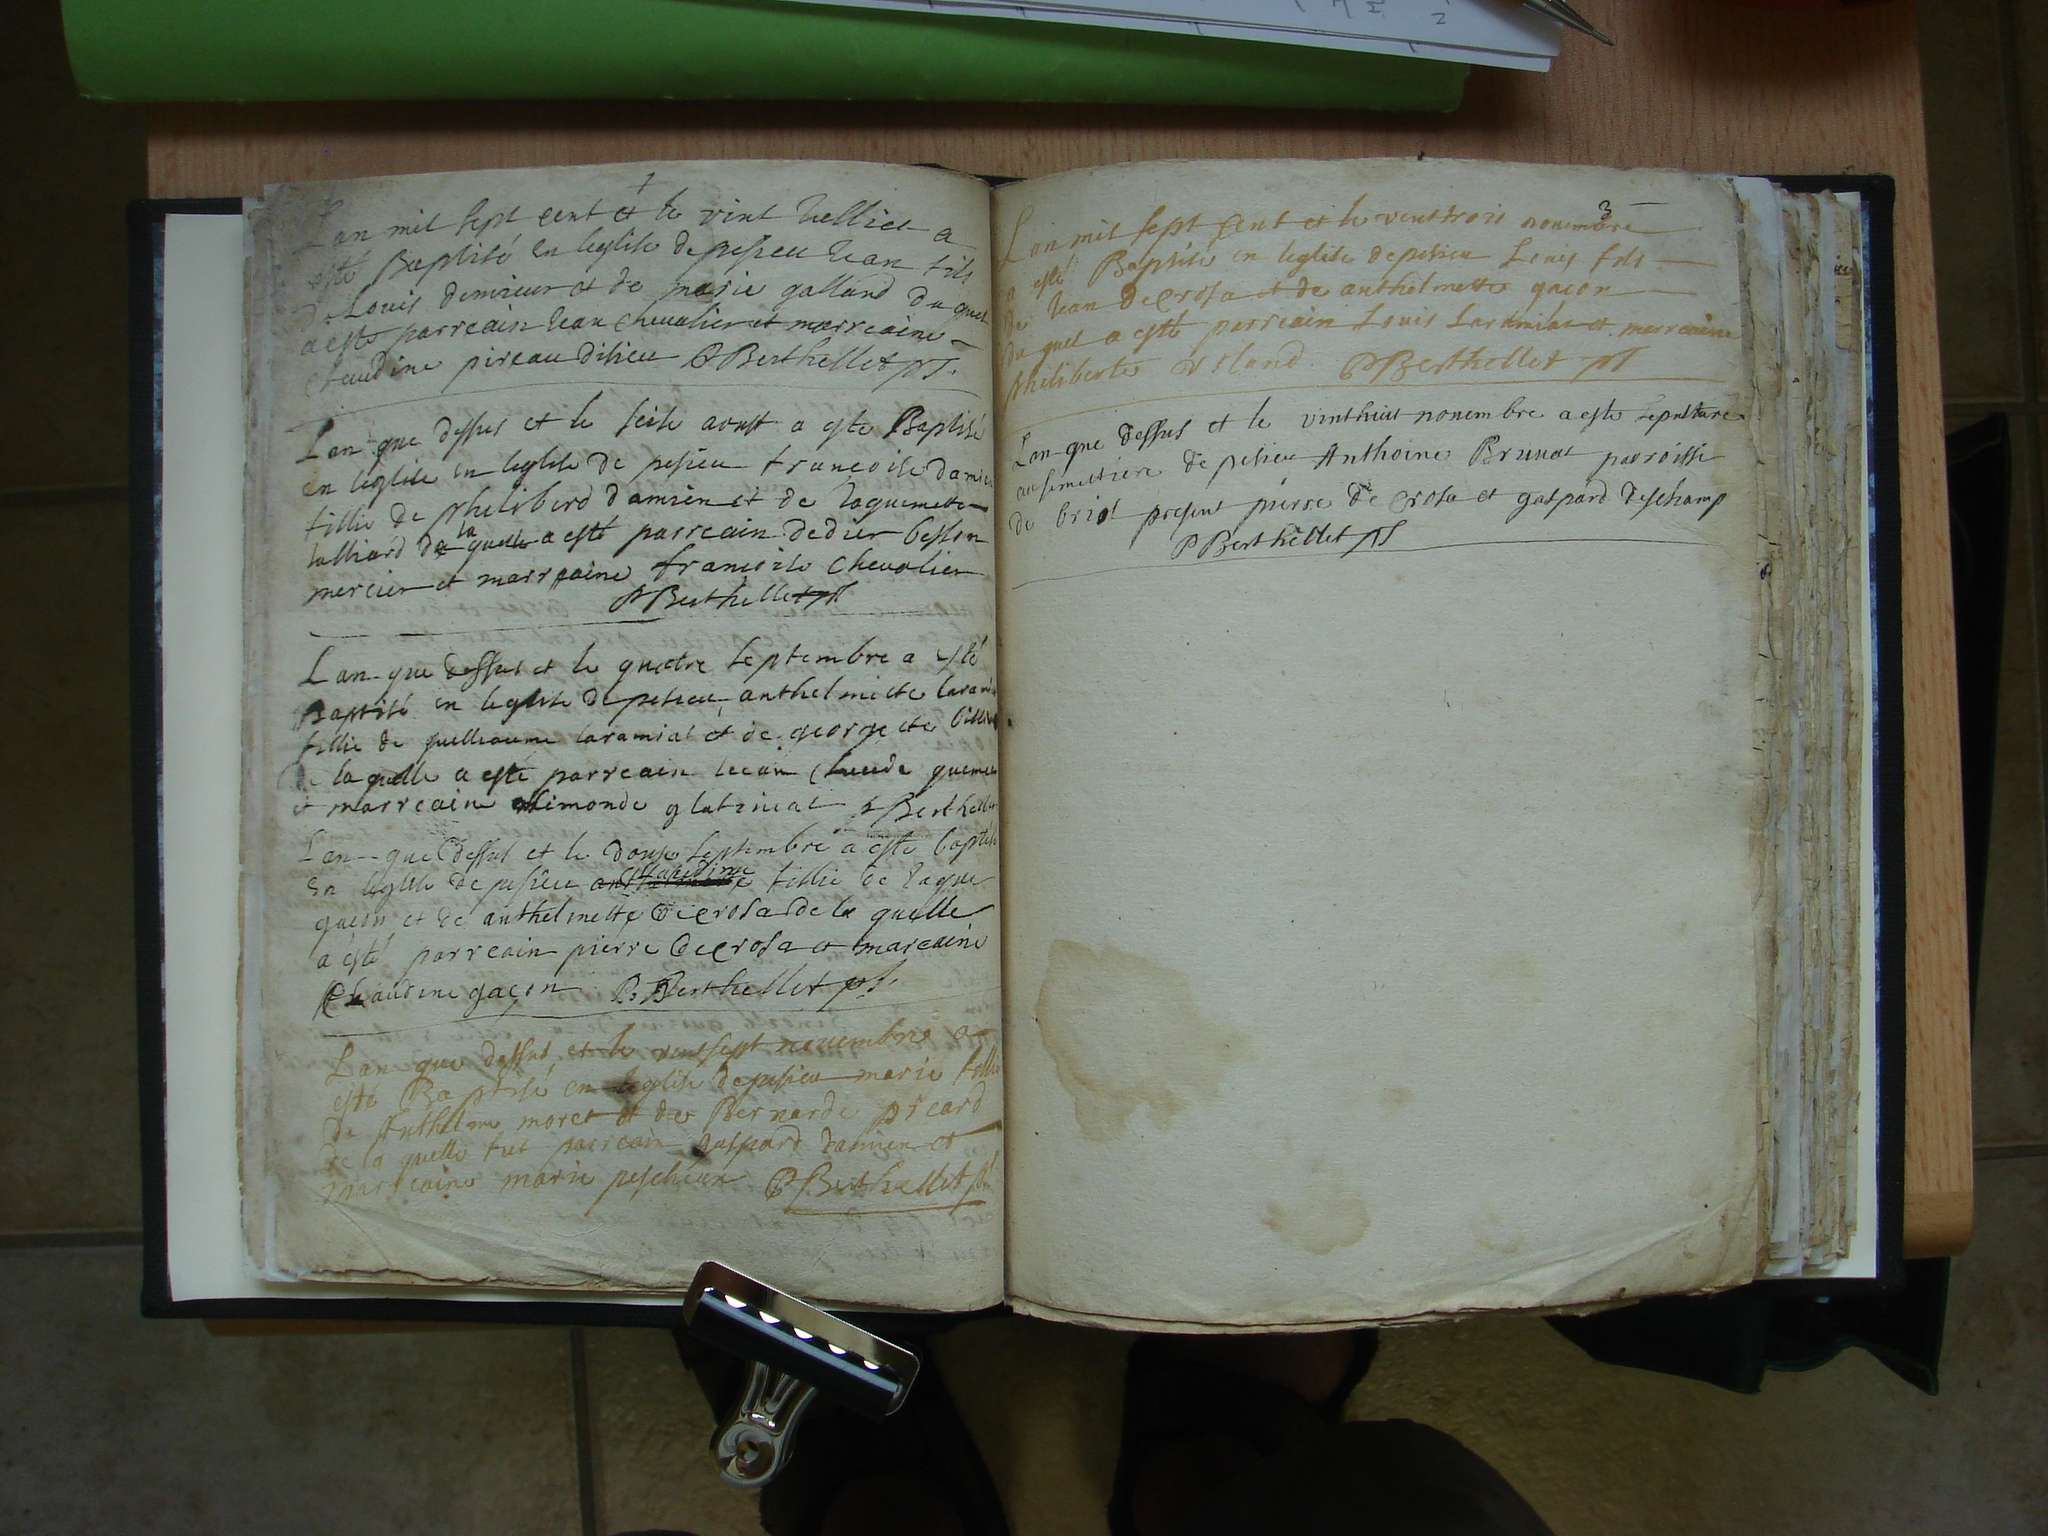 Lan mil sept cent et le vint Juelliet a
esté Baptisé en leglise de pesieu Jean fils
De Louis demieur et de marie galland du quel
a este parreain Jean chevalier et marreaine
claudine pireau disieu P Berthellet
Lan que dessus et le seise aoust a este Baptisé
en leglise en leglise de pesieu francoise damien
fillie de philiberd damien et de Jaquemette
talliard de la quelle a esté parreain dedier besson
mercier et marreaine francoise chevalier
P Berthellet
Lan que dessus et le quattre septembre a esté
Baptisé en leglise de pesieu anthelmette
fillie de guelleaume laramiat et de georgette
de laquelle a esté parreain claude
et marreaine glatineat P Berthellet
Lan que dessus et le douse septembre a esté baptisé
en leglise de pesieu claudine fillie de Jaque
gacon et de anthelmette decrosa de la quelle
a esté parreain pierre decrosa et mareaine
claudine gacon P. Berthellet
Lan que dessus et le vintsept nouembre a
esté Baptisé en leglise de pesieu marie fillie
De Anthelme moret et de Bernarde picard
de la quelle fut parreain gaspard damien et
marreaine marie pescheur P Berthellet
3
Lan mil sept cent et le vent trois nouembre
a esté Baptisé en leglise de pesieu Louis fils
de Jean decrosa et de anthelmette gacon
du quel a esté parreain Louis Laramiat et marreaine
philiberte P Berthellet
Lan que dessus et le vinthuit nouembre a este sepulturé
au semettiere de pesieu Anthoine Brunat parroissi
de briot present pierre de crosa et gaspard deschamp
P Berthellet